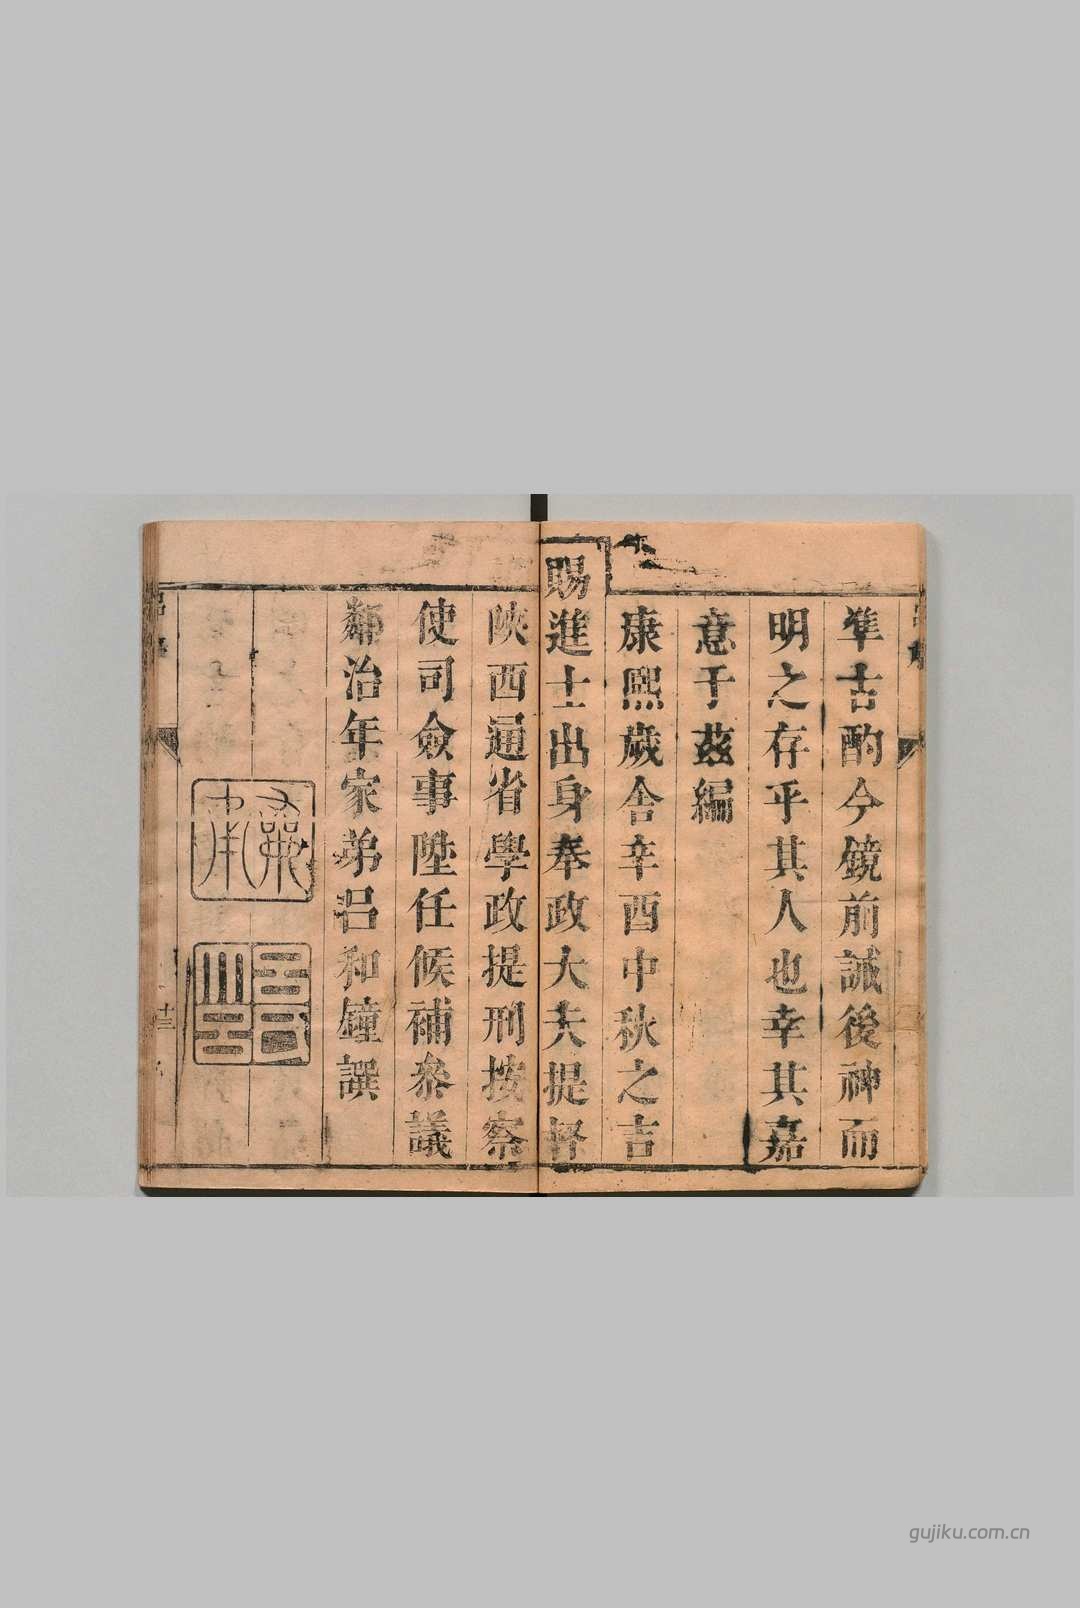 凖古酌今鏡前誡後神而
明之存乎其人也幸其嘉
意于茲編
康熙歲舍辛酉中秋之吉
賜進士出身奉政大夫提督
陜西通省學政提刑按察
使司僉事陞任候補叅議
鄰治年家弟呂和鐘譔
十三
gujiku.com.cn